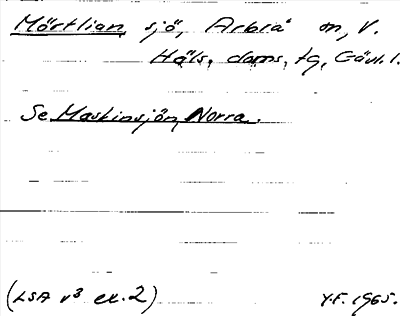 Mörtlian, sjö, Arbrå sn, V.
Häls. doms, tg, Gävl. l.
Se Mastinsjön, Norra.
(LSA v³ ex. 2) Y.F. 1965.